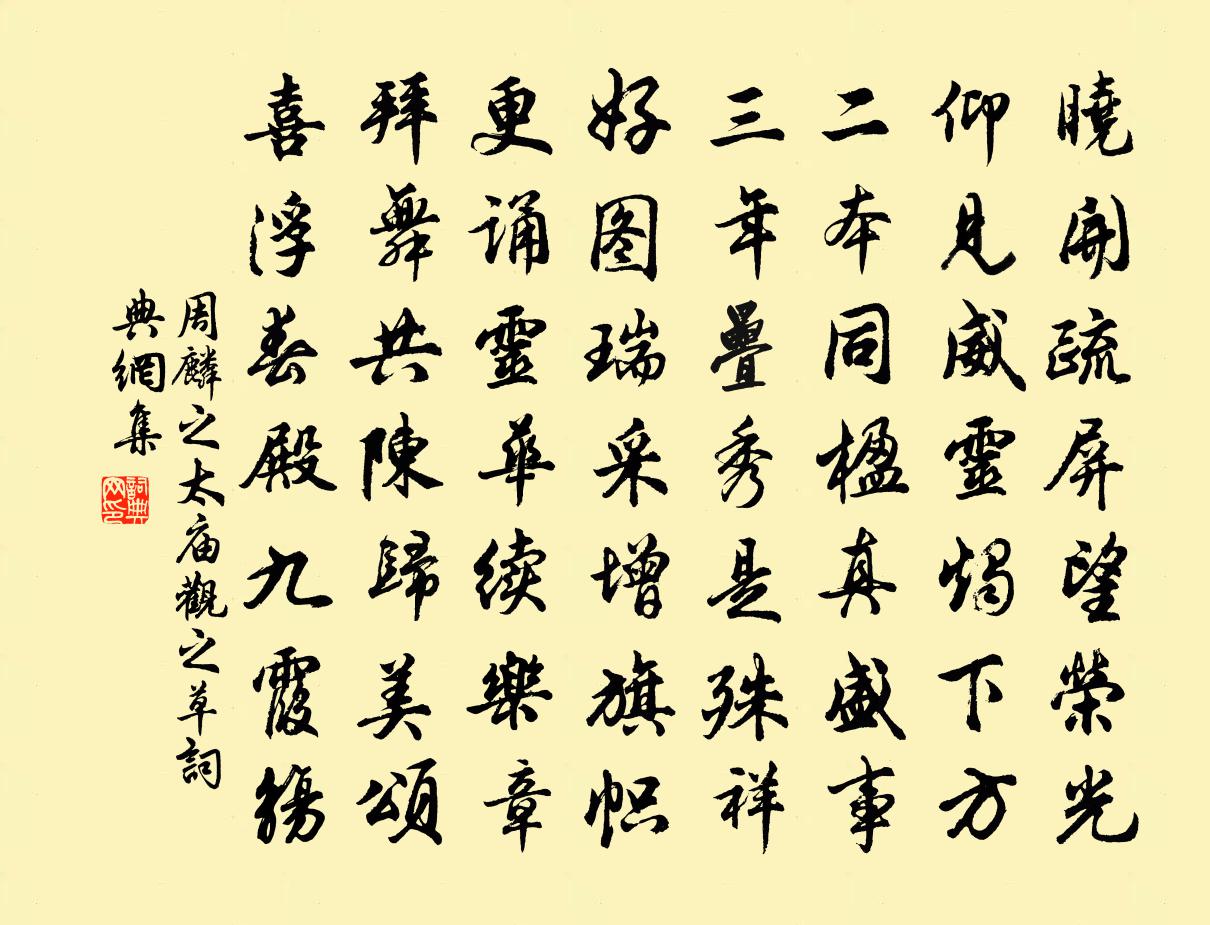 曉開疏屏望榮光
仰見威靈燭下方
二本同楹真盛事
三年疊秀是殊祥
好图瑞采增旗帜
更诵靈華续樂章
拜舞共陳歸美頌
喜浮春殿九霞觴
周麟之太庙觀之草詞
典網集
詞典网印